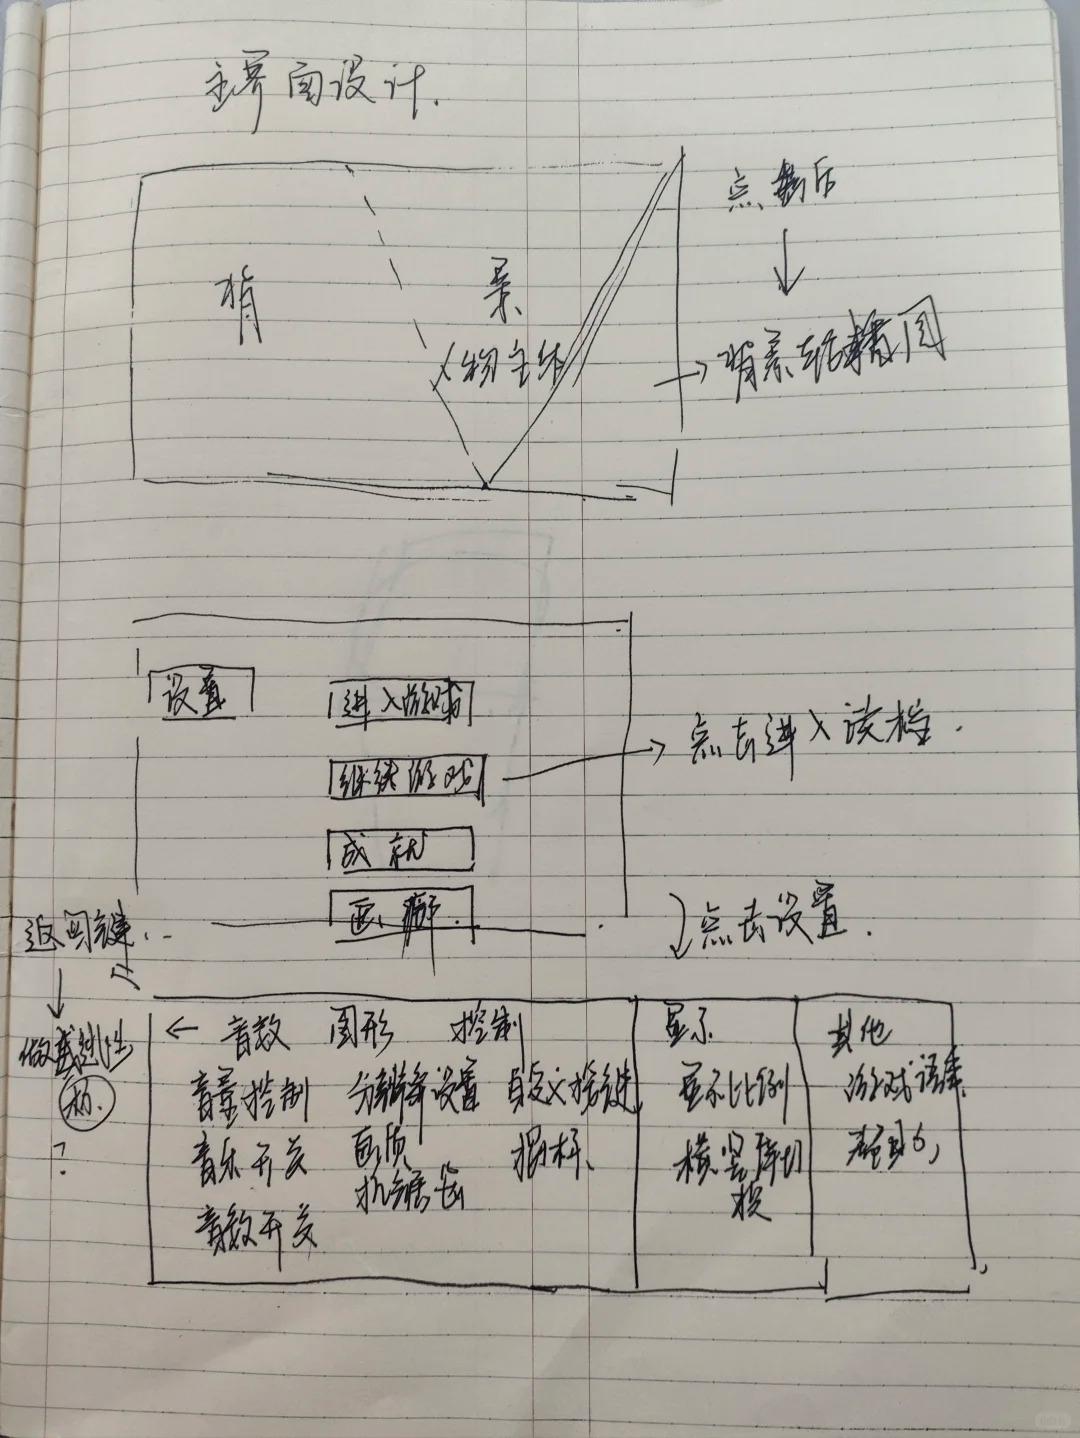 主界面设计.
点击后
背 景
人物主体
背景轮播图
设置
进入游戏
继续游戏
点击进入读档.
成就
画廊.
返回键..
点击设置.
做成泄性
标.
?
← 音效 图形 控制 显示 其他
音量控制 分辨率设置 自定义按键 显示比例 游戏语言
音乐开关 画质 摇杆、 横竖屏切换
抗锯齿
音效开关